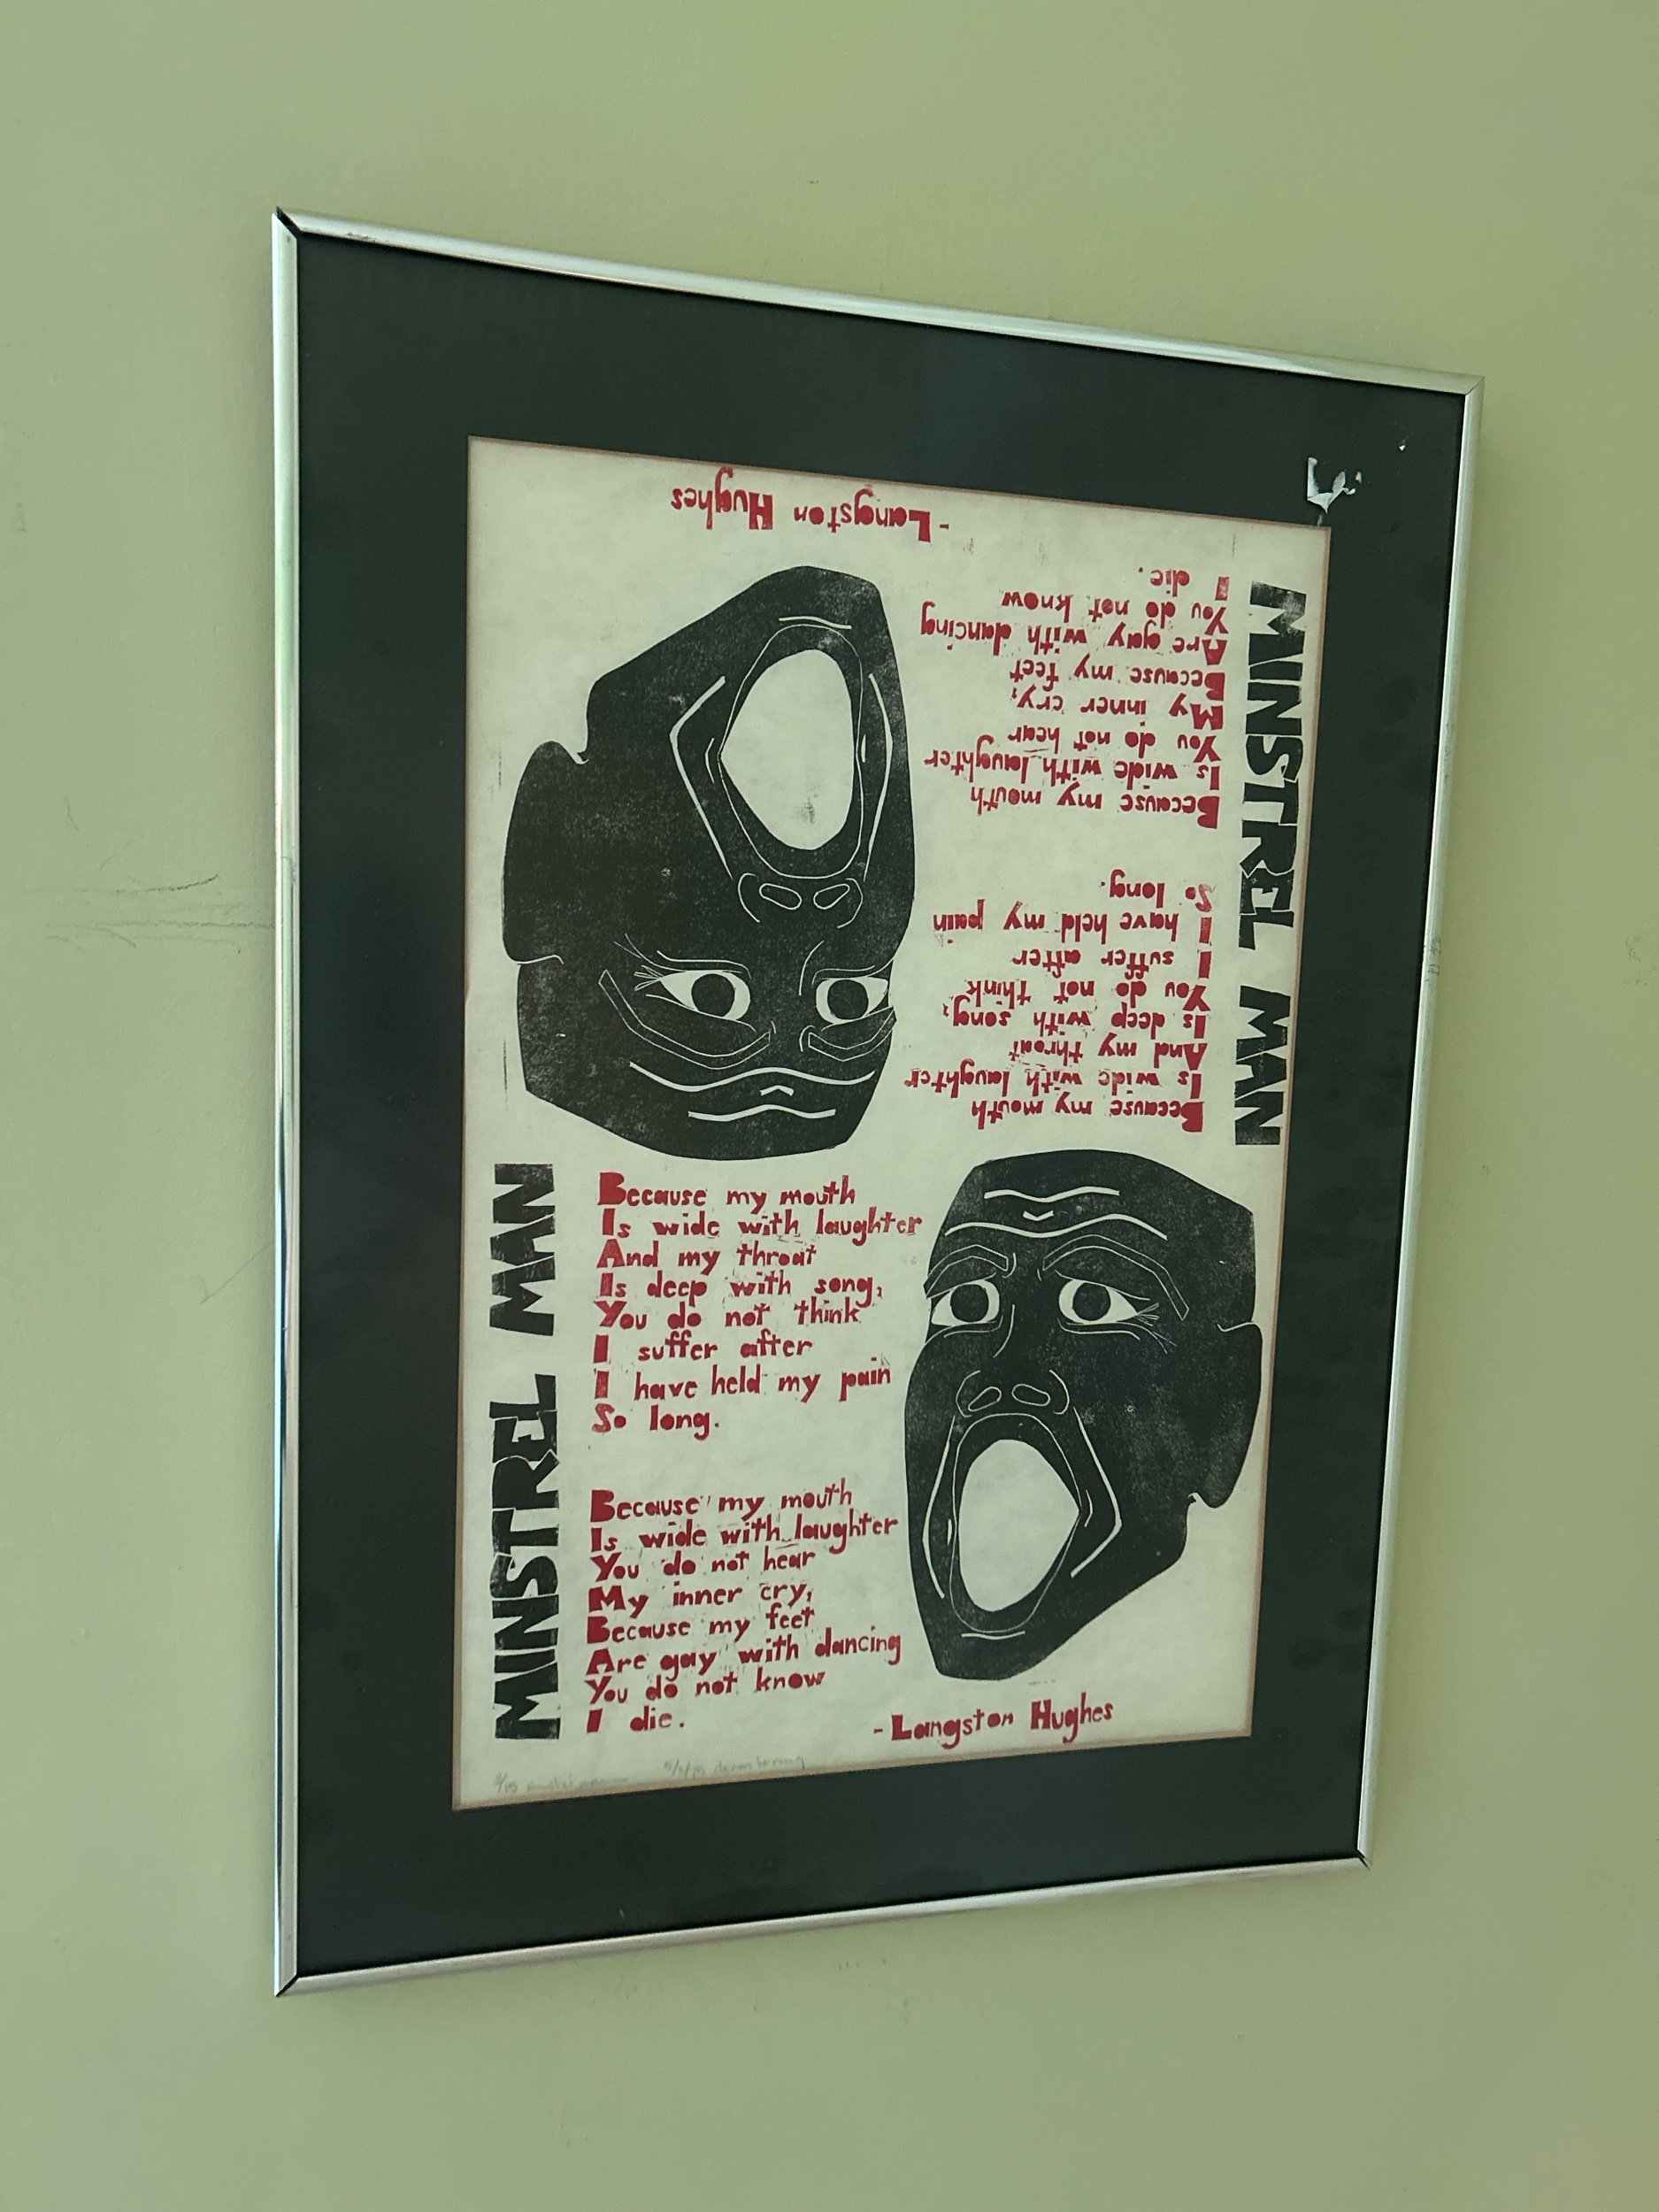 - Langston Hughes
MINSTREL MAN
Because my mouth
Is wide with laughter
And my throat
Is deep with song,
You do not think
I suffer after
I have held my pain
So long.
Because my mouth
Is wide with laughter
You do not hear
My inner cry,
Because my feet
Are gay with dancing
You do not know
I die.
MINSTREL MAN
Because my mouth
Is wide with laughter
And my throat
Is deep with song,
You do not think
I suffer after
I have held my pain
So long.
Because my mouth
Is wide with laughter
You do not hear
My inner cry,
Because my feet
Are gay with dancing
You do not know
I die.
- Langston Hughes